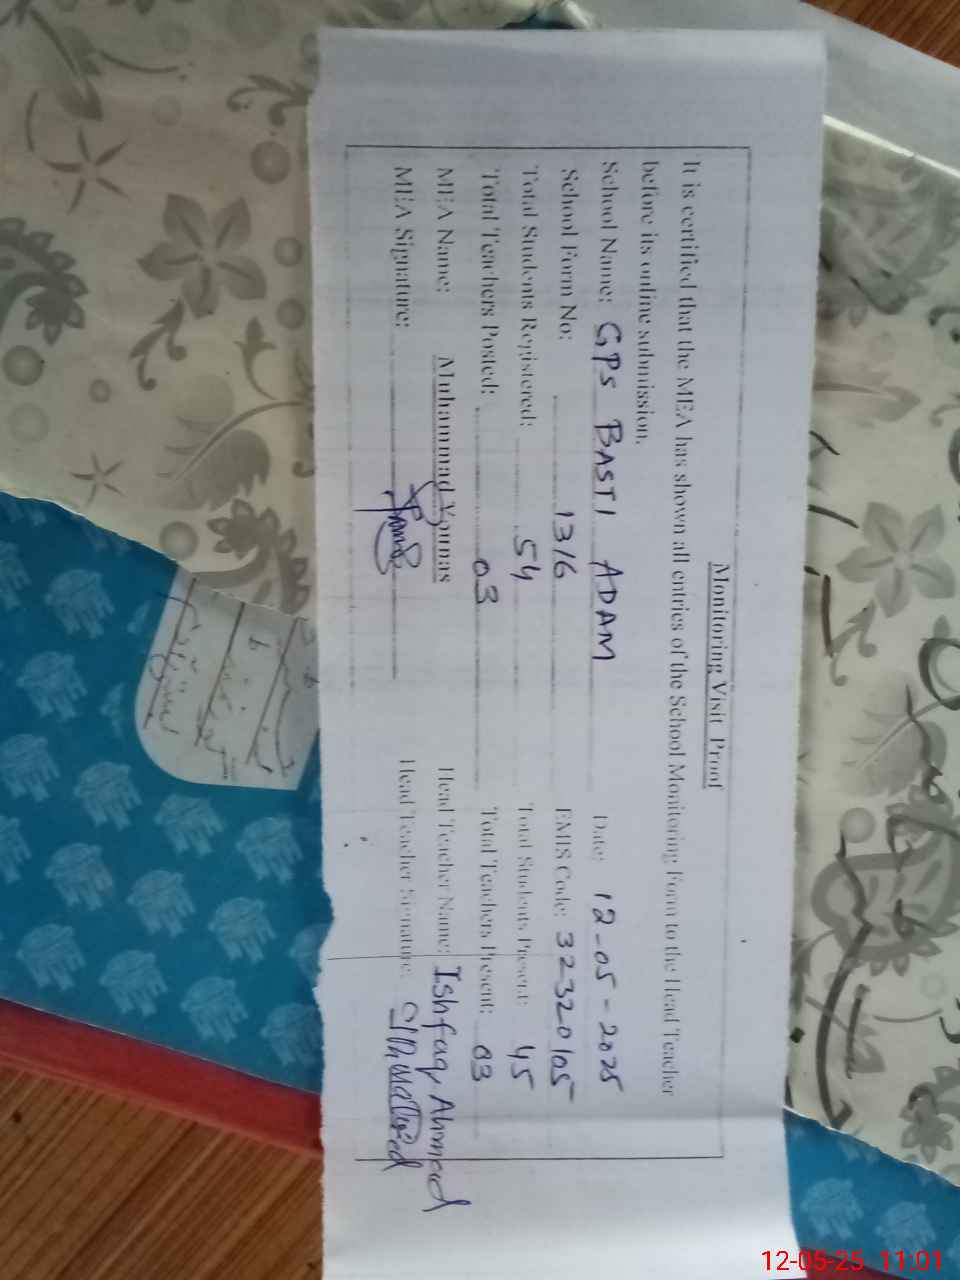 Monitoring Visit Proof
It is certified that the MEA has shown all entries of the School Monitoring Form to the Head Teacher
before its online submission.
School Name: GPS BASTI ADAM Date: 12-05-2025
School Form No: 1316 EMIS Code: 32320105
Total Students Registered: 54 Total Students Present: 45
Total Teachers Posted: 03 Total Teachers Present: 03
MEA Name: Muhammad Younas Head Teacher Name: Ishfaq Ahmad
MEA Signature: Head Teacher Signature:
12-05-25 11:01